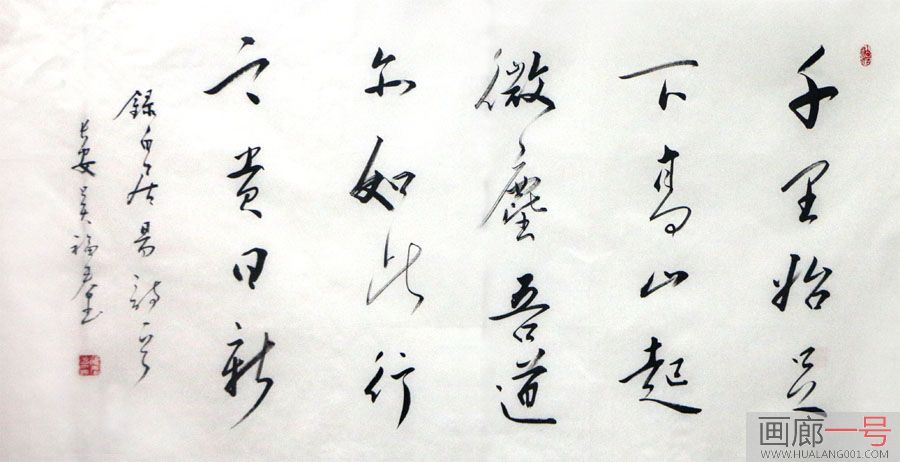 千里始足
下高山起
微塵吾道
亦如此行
之貴日新
録白居易詩
長安吴福
画廊一号
WWW.HUALANG001.COM